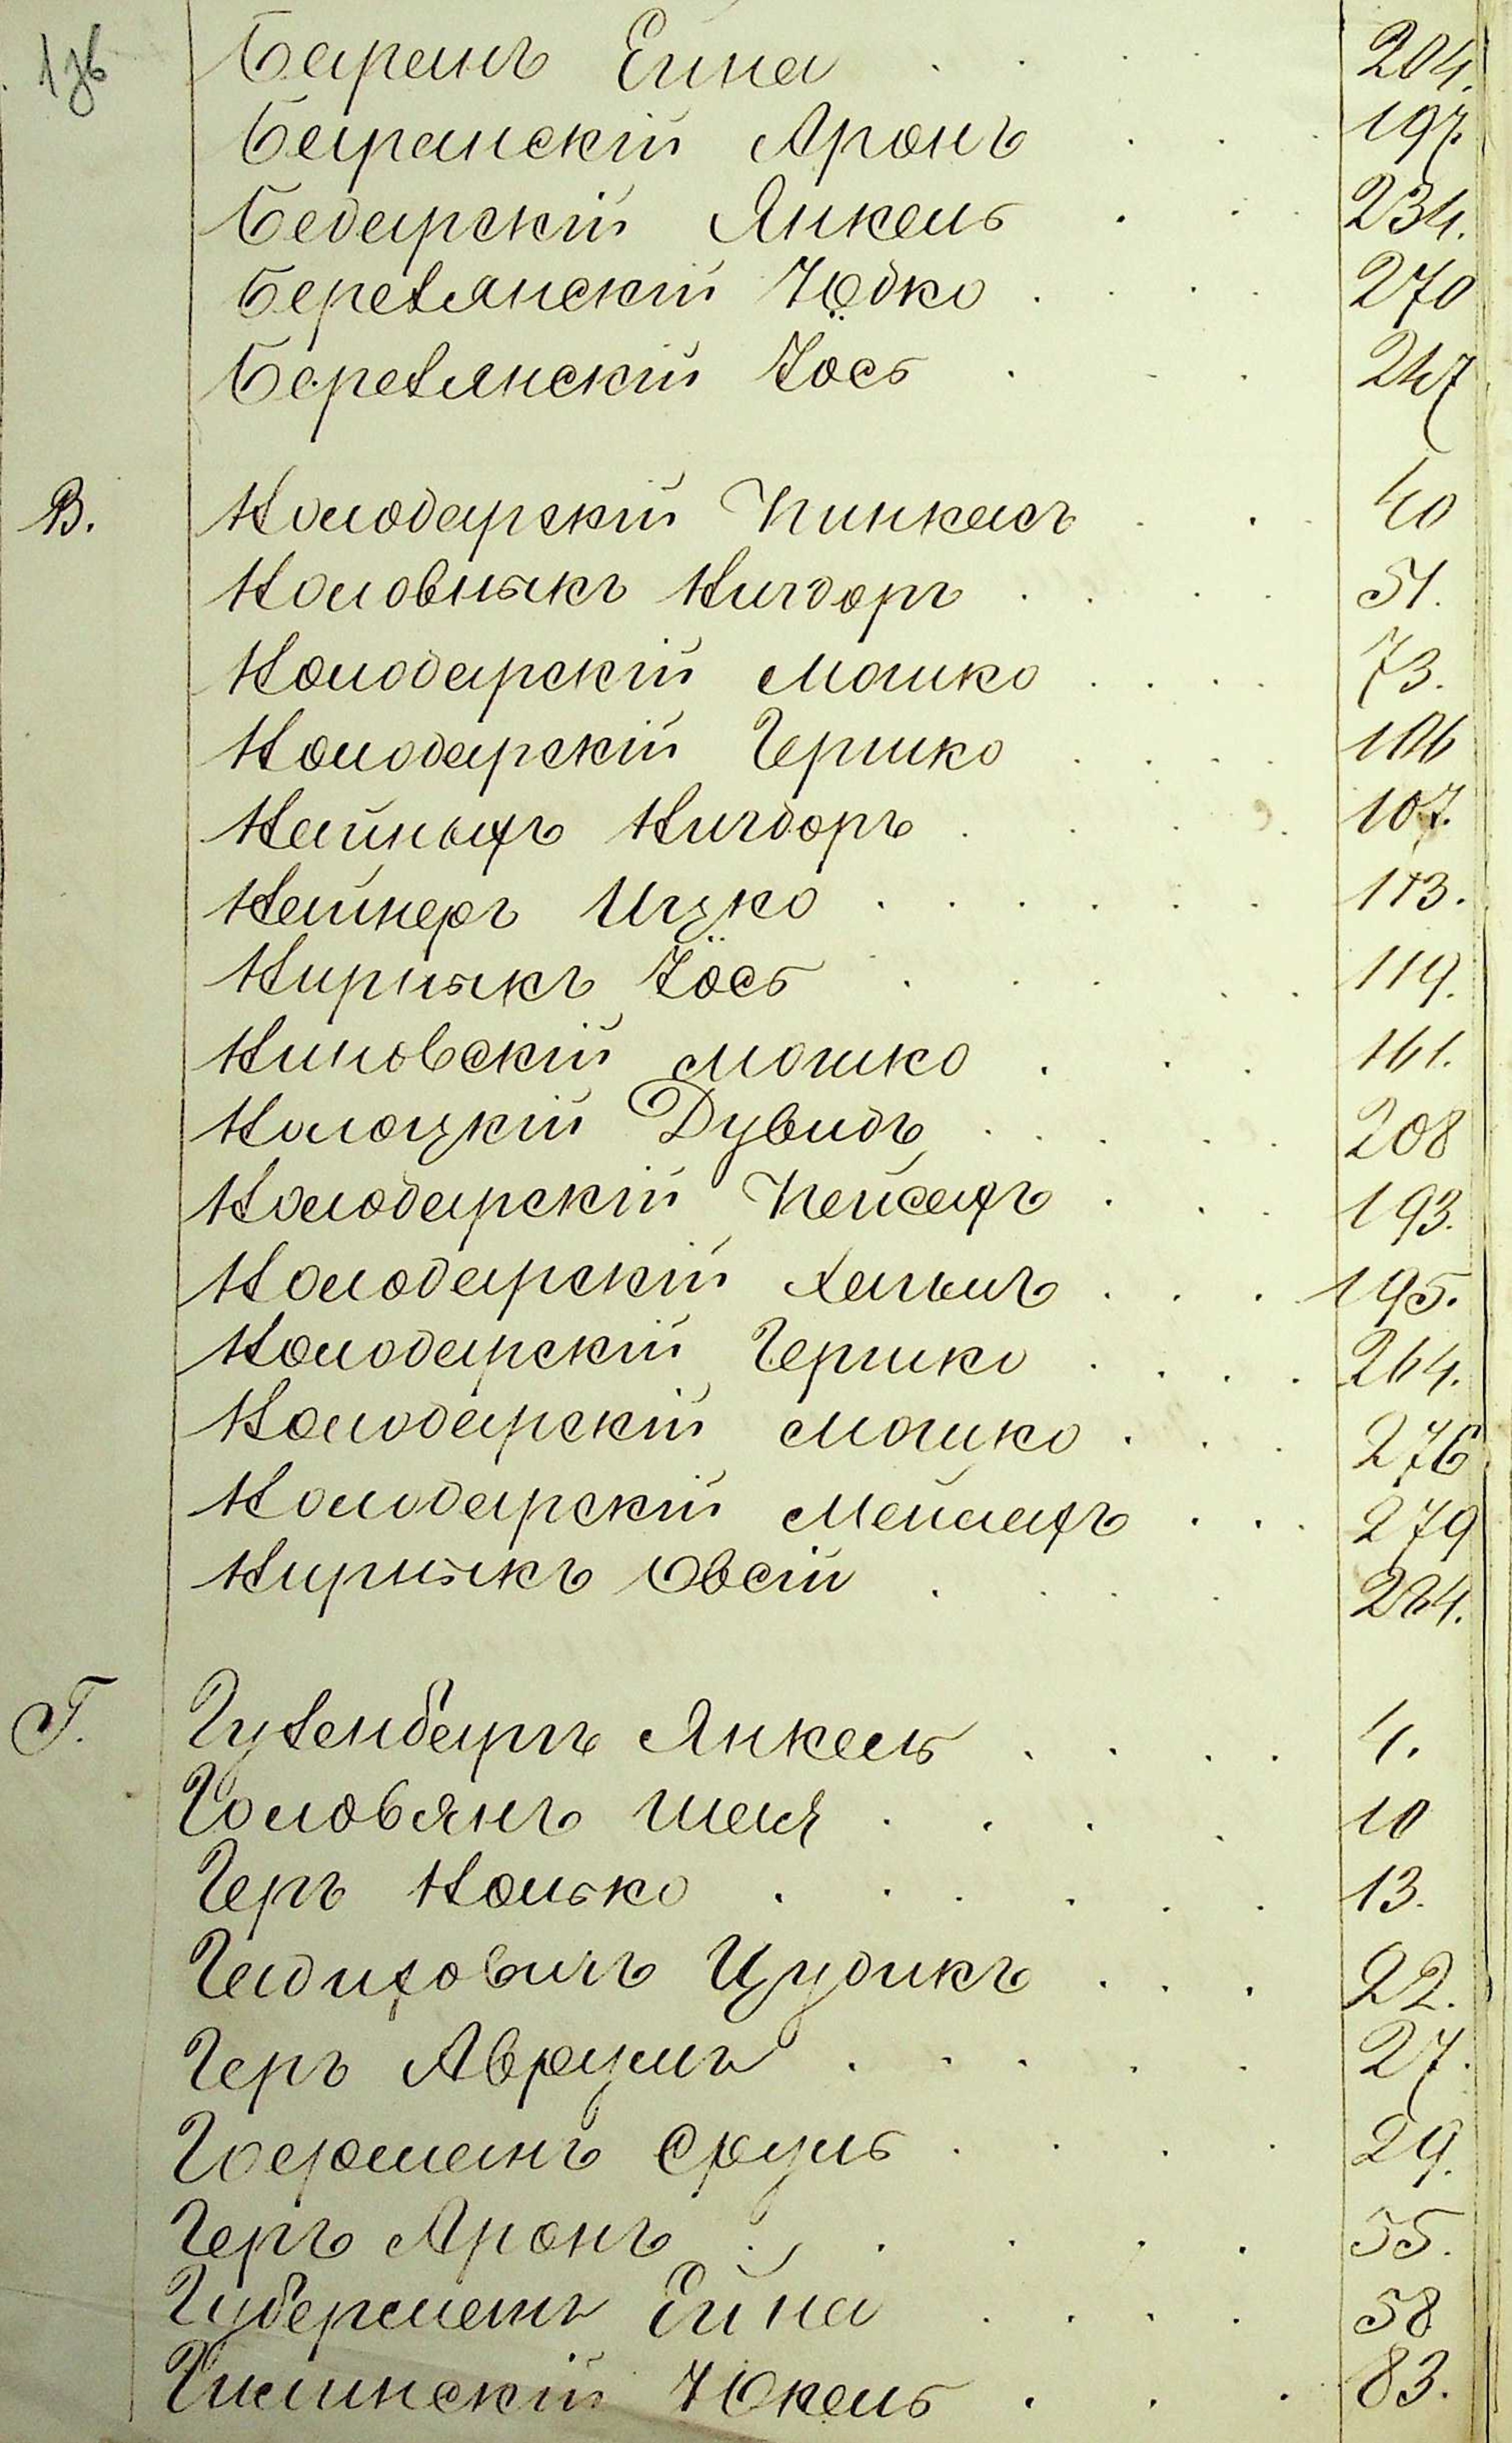 Баранъ Ейна 204.
Баранскій Аронъ 197.
Бодарскій Янкель 234.
Березянскій Юдко 270
Березянскій Іось 247
В. Володарскій Пинкасъ 40
Воловникъ Вигдоръ 51.
Володарскій Мошко 73.
Володарскій Гершко 106
Вайныхъ Вигдоръ 107.
Вайнеръ Ицко 113.
Вирникъ Іось 119.
Виновскій Мошко 161.
Волоцкій Дувидъ 208
Володарскій Пейсахъ 193.
Володарскій Хаимъ 195.
Володарскій Гершко 264.
Володарскій Мошко 276
Володарскій Мейлахъ 279
Вирникъ Овсій 284.
Г. Гузенбергъ Янкель 4.
Головянъ Шая 10
Геръ Волько 13.
Гедиховичъ Цудикъ 22.
Геръ Аврумъ 27.
Гофманъ Сруль 29.
Геръ Аронъ 55.
Губерманъ Ейна 58
Гилинскій Юкель 83.